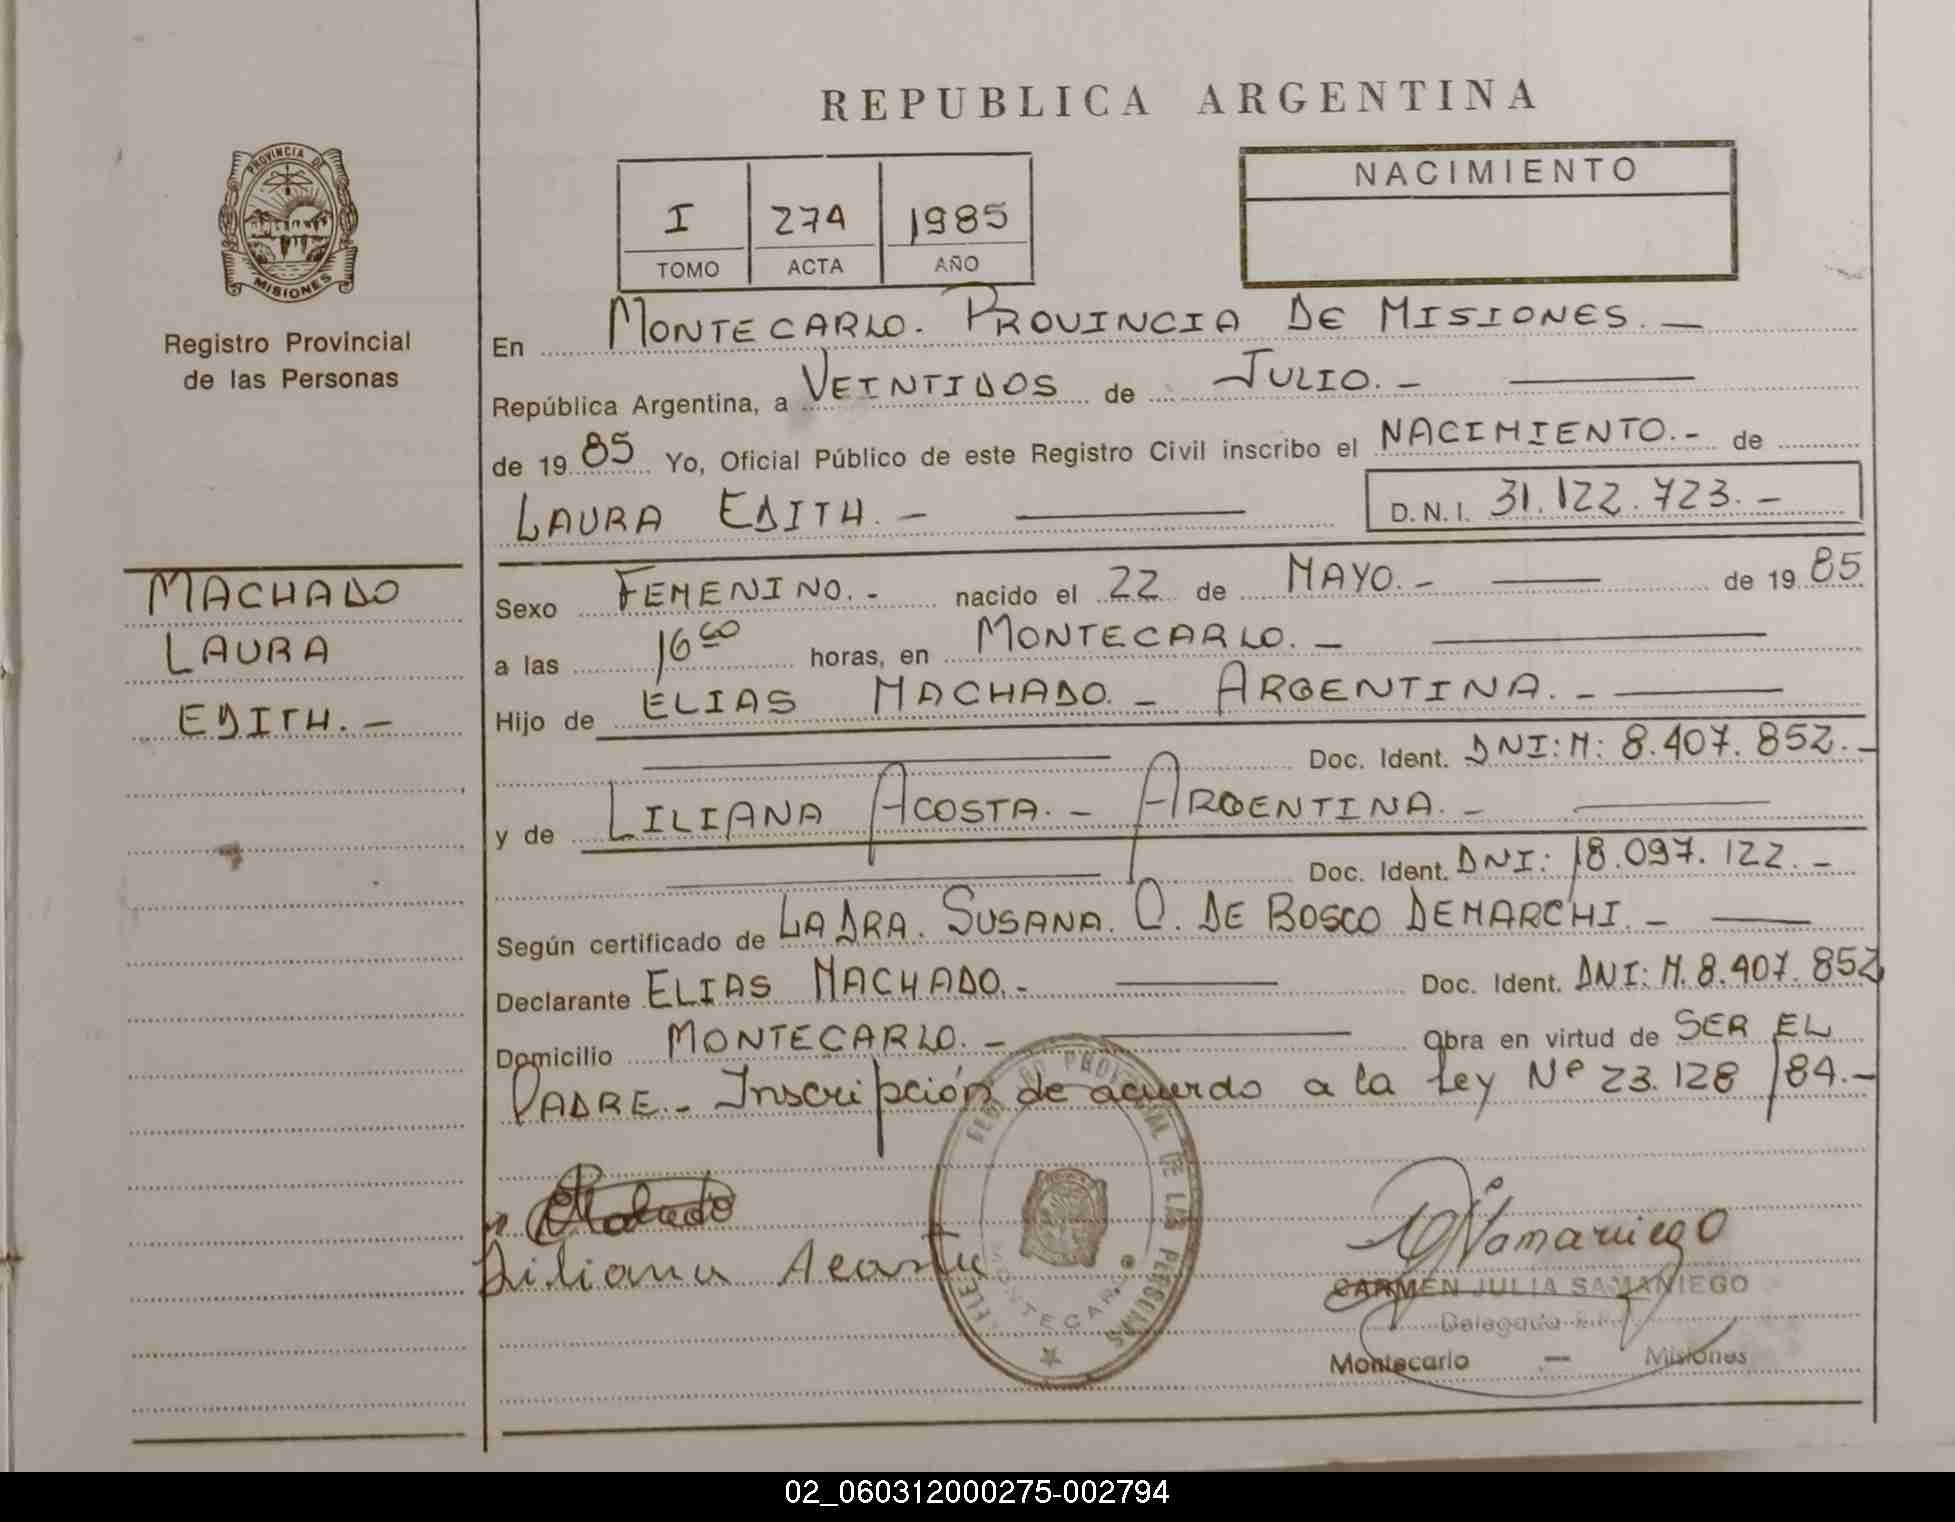 REPUBLICA ARGENTINA
PROVINCIA DE
MISIONES
Registro Provincial
de las Personas
I 274 1985
TOMO ACTA AÑO
NACIMIENTO
En MONTECARLO. PROVINCIA DE MISIONES. —
República Argentina, a VEINTIDOS de JULIO. —
de 19 85 Yo, Oficial Público de este Registro Civil inscribo el NACIMIENTO.- de
LAURA EDITH. — D.N.I. 31.122.723. —
MACHADO
LAURA
EDITH. —
Sexo FEMENINO. - nacido el 22 de MAYO. - de 19 85
a las 16 00 horas, en MONTECARLO. —
Hijo de ELIAS MACHADO. — ARGENTINA. -
Doc. Ident. DNI: M: 8.407.852. —
y de LILIANA ACOSTA. — ARGENTINA. -
Doc. Ident. DNI: 18.097.122. —
Según certificado de LA DRA. SUSANA. O. DE BOSCO DEMARCHI. —
Declarante ELIAS MACHADO. - Doc. Ident. DNI: M. 8.407.852
Domicilio MONTECARLO. — Obra en virtud de SER EL
PADRE. - Inscripción de acuerdo a la Ley Nº 23.128/84. —
PROVINCIAL DE LAS PERSONAS
MONTECARLO
Liliana Acosta
CARMEN JULIA SAMANIEGO
Delegada
Montecarlo — Misiones
02_060312000275-002794